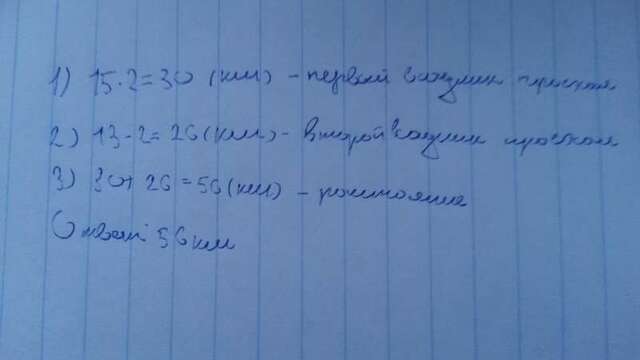 1) 15·2=30 (км) – первый всадник проскакал
2) 13·2=26 (км) – второй всадник проскакал
3) 30+26=56 (км) – расстояние
Ответ: 56 км